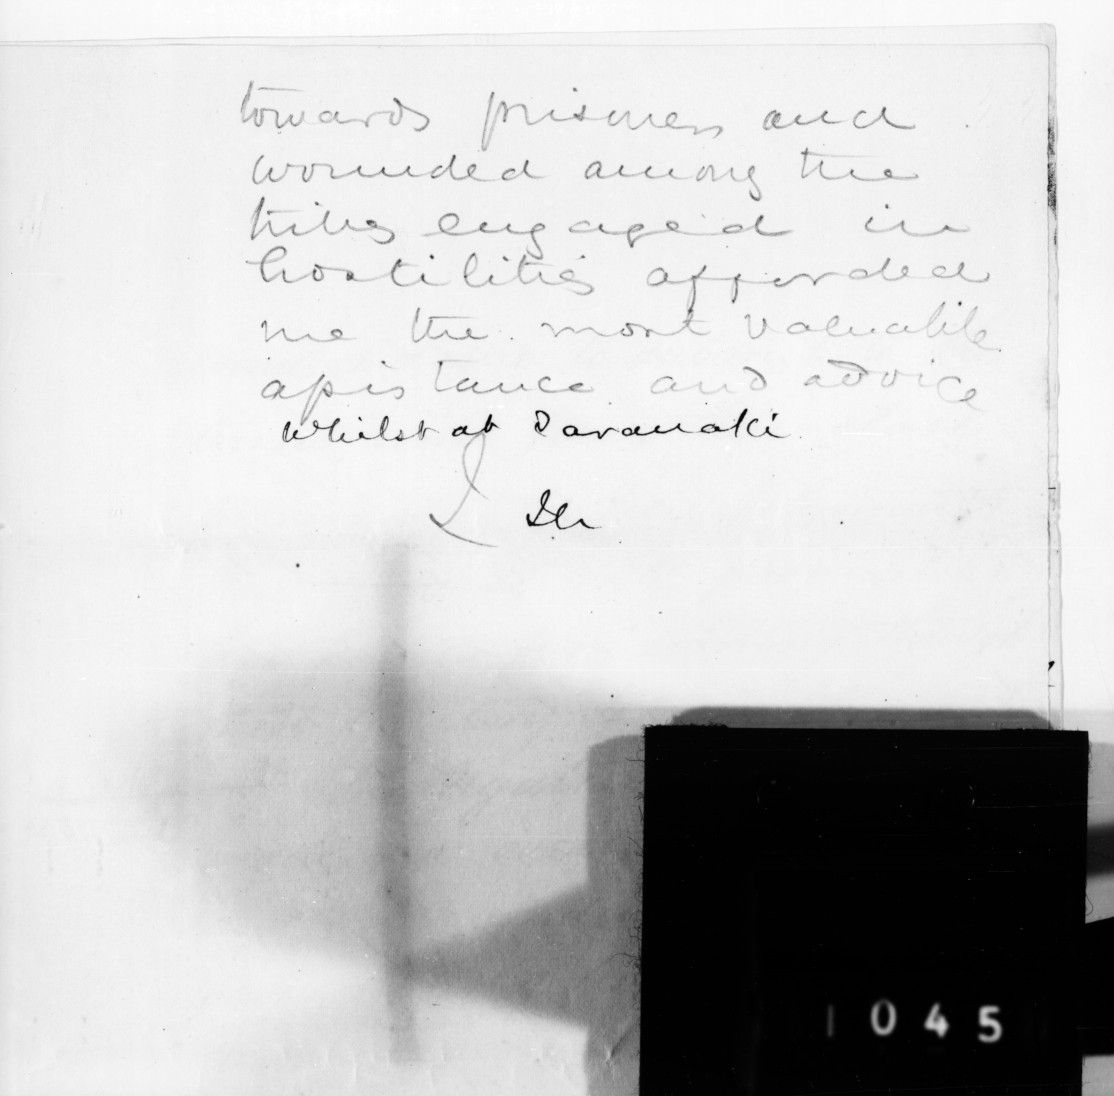 towards prisoners and
wounded among the
tribes engaged in
hostilities afforded
me the most valuable
assistance and advice
whilst at Taranaki.
1045